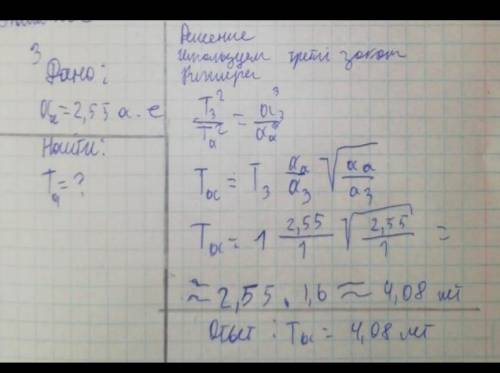 3
Дано:
a = 2,55 а. е
Найти:
T = ?
Решение
Используем третий закон
T₃²/Tₐ² = a₃³/aₐ³
Tα = T₃ aₐ/a₃ √(aₐ/a₃)
Tα = 1 2,55/1 √(2,55/1) =
≈ 2,55 . 1,6 ≈ 4,08 лет
Ответ : Tα = 4,08 лет